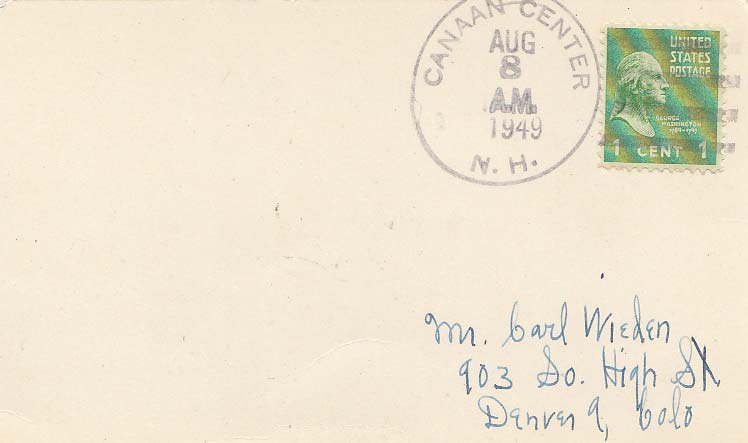 CANAAN CENTER
AUG
8
A.M.
1949
N. H.
UNITED
STATES
POSTAGE
GEORGE
WASHINGTON
1 CENT 1
Mr. Carl Wieden
903 So. High St
Denver 9, Colo